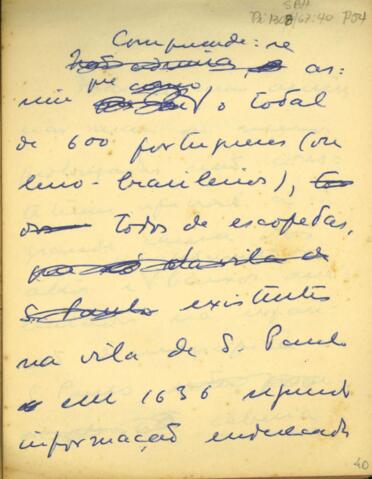 SBH
Pi 1308/67:40 P54
Compreende-se
as-
sim que o total
de 600 portugueses (ou
luso-brasileiros),
todos de escopetas,
existentes
na vila de S. Paulo
em 1636 segundo
informação endereçada
40